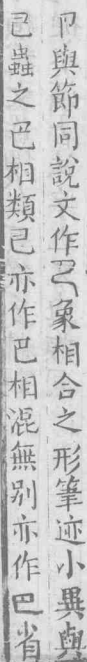 卩與節同說文作㔾象相合之形筆迹小異與
己蟲之巴相類己亦作巴相混無别亦作巴省